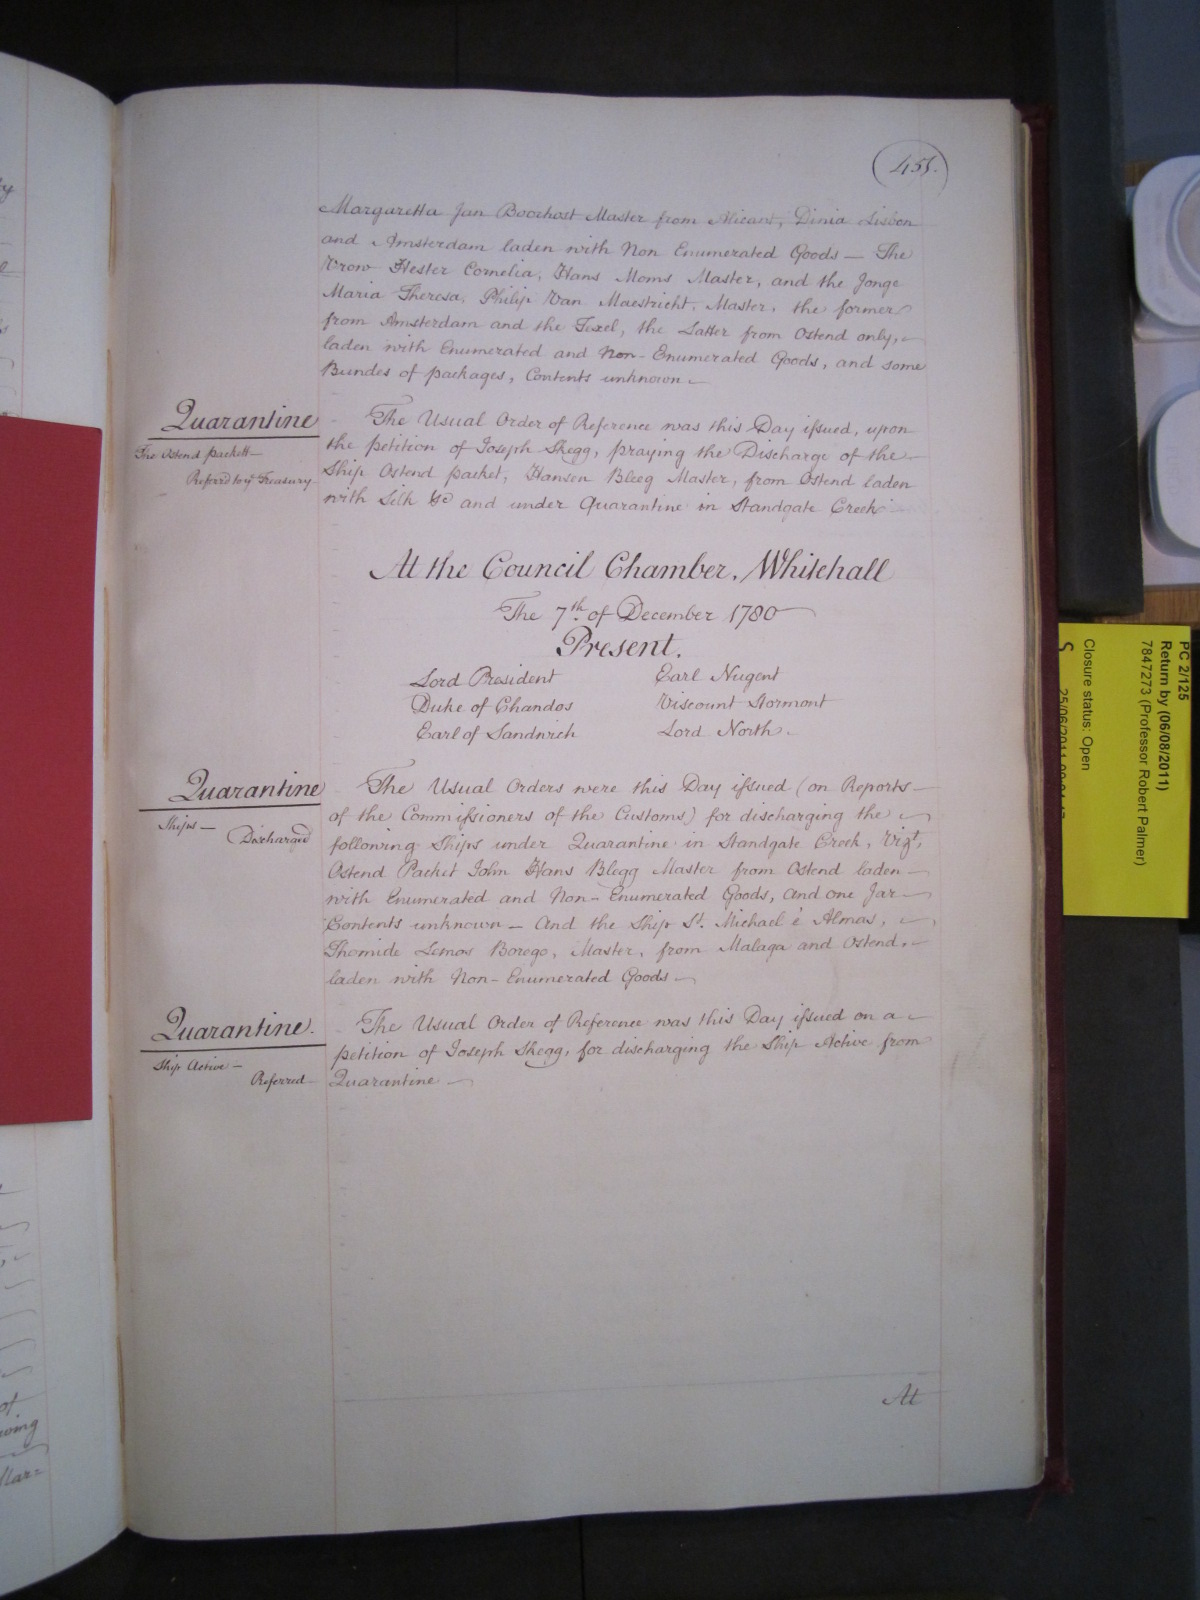 455.
Margaretta Jan Boockost Master from Alicant, Denia Lisbon
and Amsterdam laden with Non Enumerated Goods — The
Vrow Hester Cornelia, Hans Moms Master, and the Jonge
Maria Theresa, Philip Van Maestricht, Master, the former
from Amsterdam and the Texel, the Latter from Ostend only,
laden with Enumerated and Non-Enumerated Goods, and some
Bundes of packages, Contents unknown
Quarantine
The Ostend packett —
Referred to ye Treasury
The Usual Order of Reference was this Day issued, upon
the petition of Joseph Skegg, praying the Discharge of the
Ship Ostend packet, Hansen Bleeg Master, from Ostend laden
with Silk &c and under Quarantine in Standgate Creek
At the Council Chamber, Whitehall
The 7th of December 1780
Present.
Lord President Earl Nugent
Duke of Chandos Viscount Stormont
Earl of Sandwich Lord North
Quarantine
Ships —
Discharged
The Usual Orders were this Day issued (on Reports
of the Commissioners of the Customs) for discharging the
following Ships under Quarantine in Standgate Creek, Vizt,
Ostend Packet John Hans Blegg Master from Ostend laden
with Enumerated and Non-Enumerated Goods, and one Jar
Contents unknown — And the Ship St. Michael é Almas,
Thomide Lemos Borego, Master, from Malaga and Ostend,
laden with Non-Enumerated Goods —
Quarantine.
Ship Active —
Referred
The Usual Order of Reference was this Day issued on a
petition of Joseph Skegg, for discharging the Ship Active from
Quarantine
At
PC 2/125
Return by (06/08/2011)
7847273 (Professor Robert Palmer)
Closure status: Open
S
of
owing
Mar=